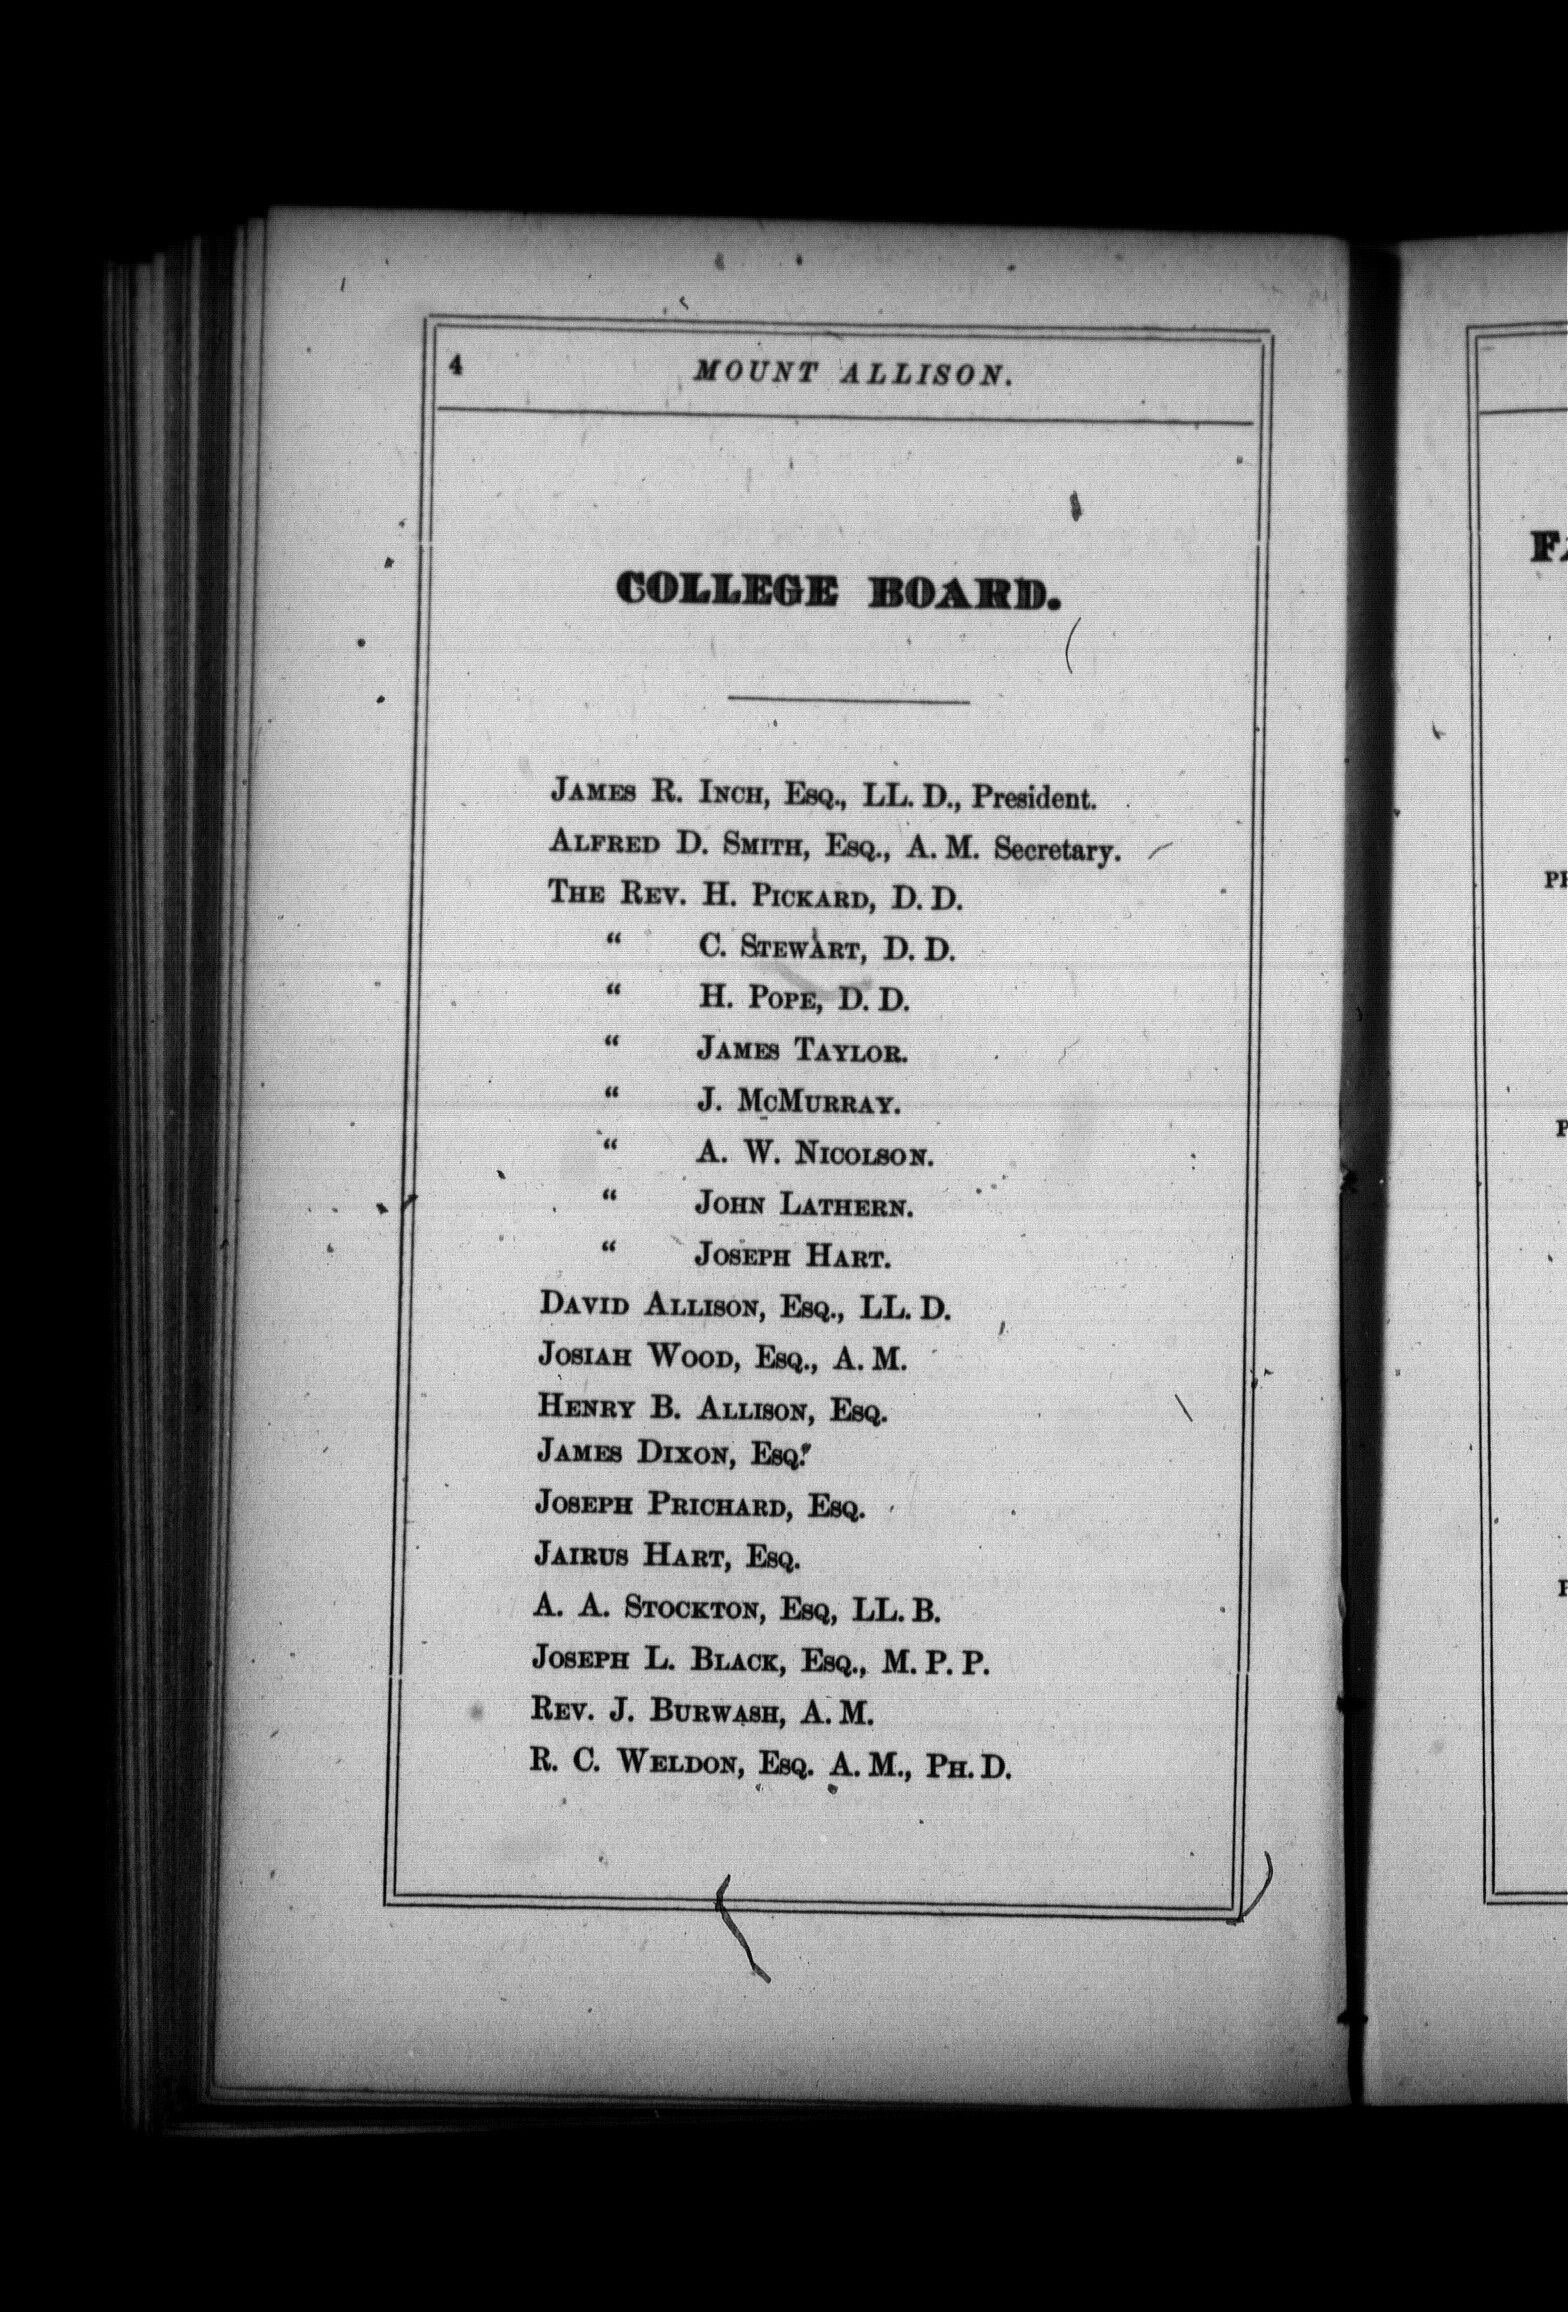 4 MOUNT ALLISON.
COLLEGE BOARD.
JAMES R. INCH, ESQ., LL. D., President.
ALFRED D. SMITH, ESQ., A. M. Secretary.
THE REV. H. PICKARD, D. D.
“ C. STEWART, D. D.
“ H. POPE, D. D.
“ JAMES TAYLOR.
“ J. MCMURRAY.
“ A. W. NICOLSON.
“ JOHN LATHERN.
“ JOSEPH HART.
DAVID ALLISON, ESQ., LL. D.
JOSIAH WOOD, ESQ., A. M.
HENRY B. ALLISON, ESQ.
JAMES DIXON, ESQ.
JOSEPH PRICHARD, ESQ.
JAIRUS HART, ESQ.
A. A. STOCKTON, ESQ, LL. B.
JOSEPH L. BLACK, ESQ., M. P. P.
REV. J. BURWASH, A. M.
R. C. WELDON, ESQ. A. M., PH. D.